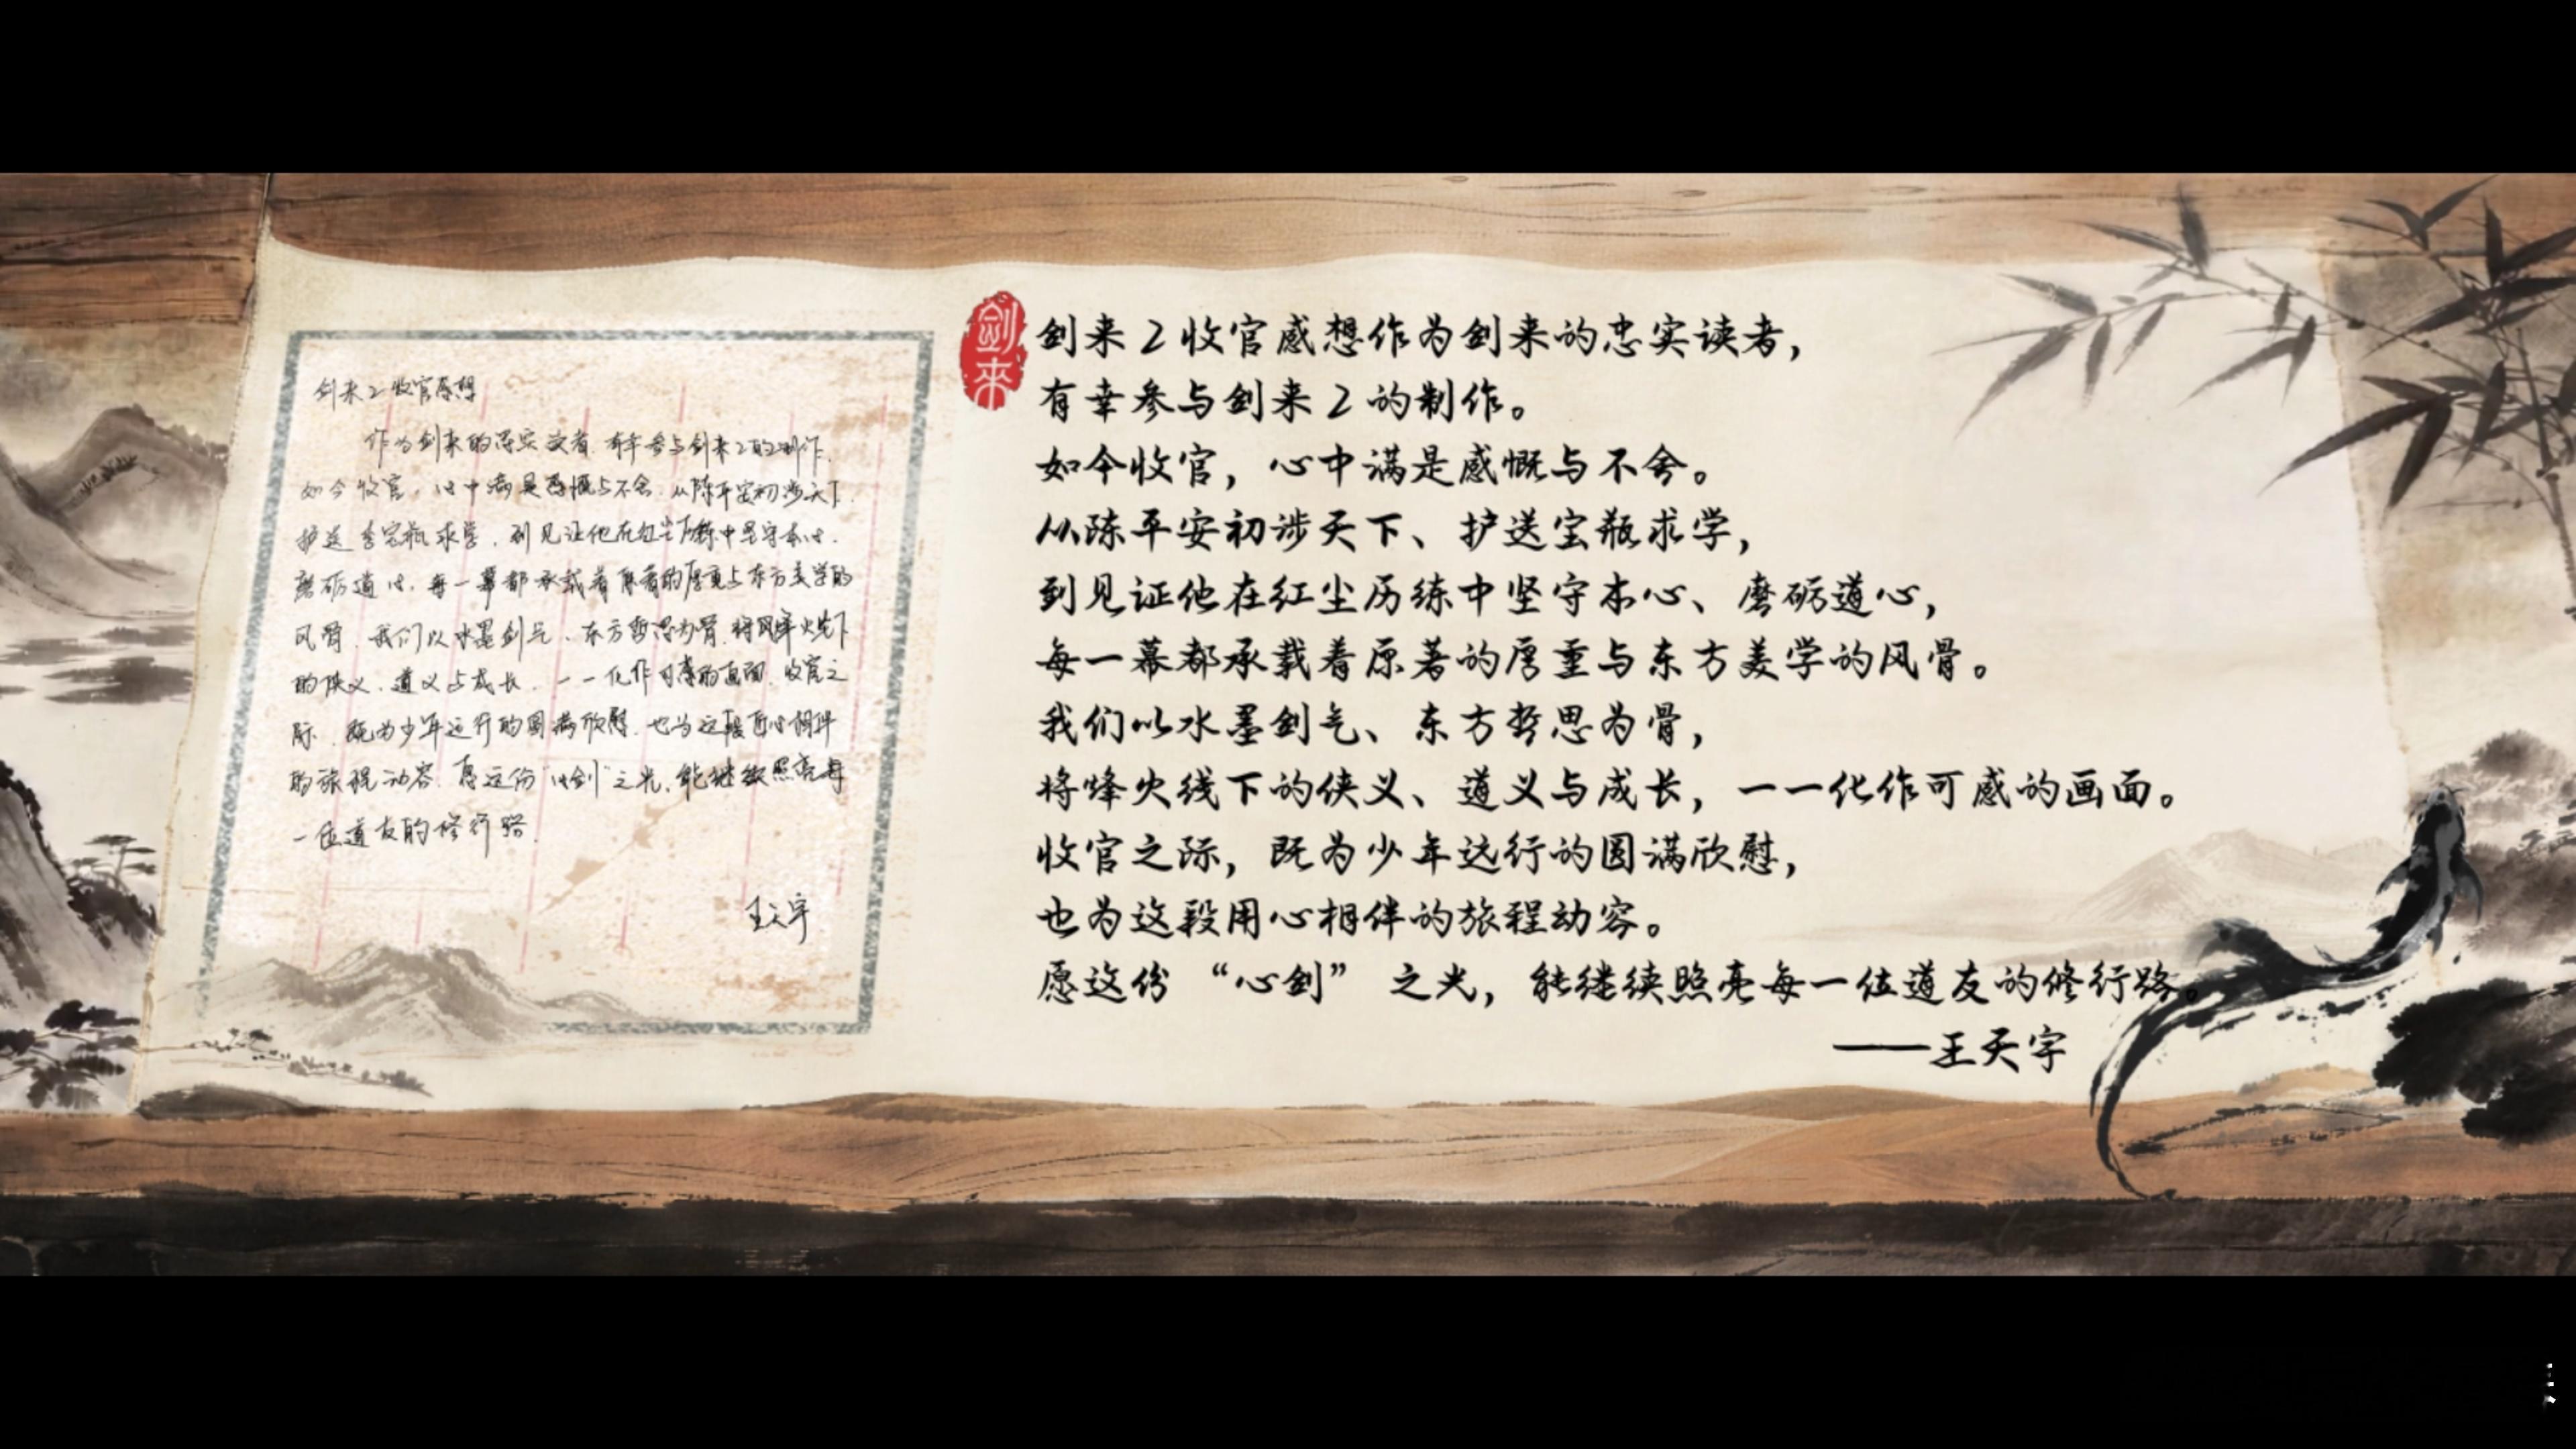 剑来2收官感想
作为剑来的忠实读者.有幸参与剑来2的制作.
如今收官,心中满是感慨与不舍.从陈平安初涉天下.
护送李宝瓶求学,到见证他在红尘历练中坚守本心.
磨砺道心.每一幕都承载着原著的厚重与东方美学的
风骨.我们以水墨剑气.东方哲思为骨.将烽火线下
的侠义.道义与成长.一一化作可感的画面.收官之
际.既为少年远行的圆满欣慰.也为这段用心相伴
的旅程动容.愿这份“心剑”之光,能继续照亮每
一位道友的修行路.
王天宇
剑来
剑来2收官感想作为剑来的忠实读者，
有幸参与剑来2的制作。
如今收官，心中满是感慨与不舍。
从陈平安初涉天下、护送宝瓶求学，
到见证他在红尘历练中坚守本心、磨砺道心，
每一幕都承载着原著的厚重与东方美学的风骨。
我们以水墨剑气、东方哲思为骨，
将烽火线下的侠义、道义与成长，一一化作可感的画面。
收官之际，既为少年远行的圆满欣慰，
也为这段用心相伴的旅程动容。
愿这份“心剑”之光，能继续照亮每一位道友的修行路。
——王天宇